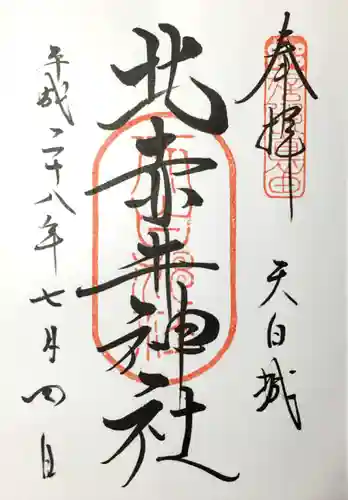 奉拝
天白城
北赤井神社
平成二十八年七月四日